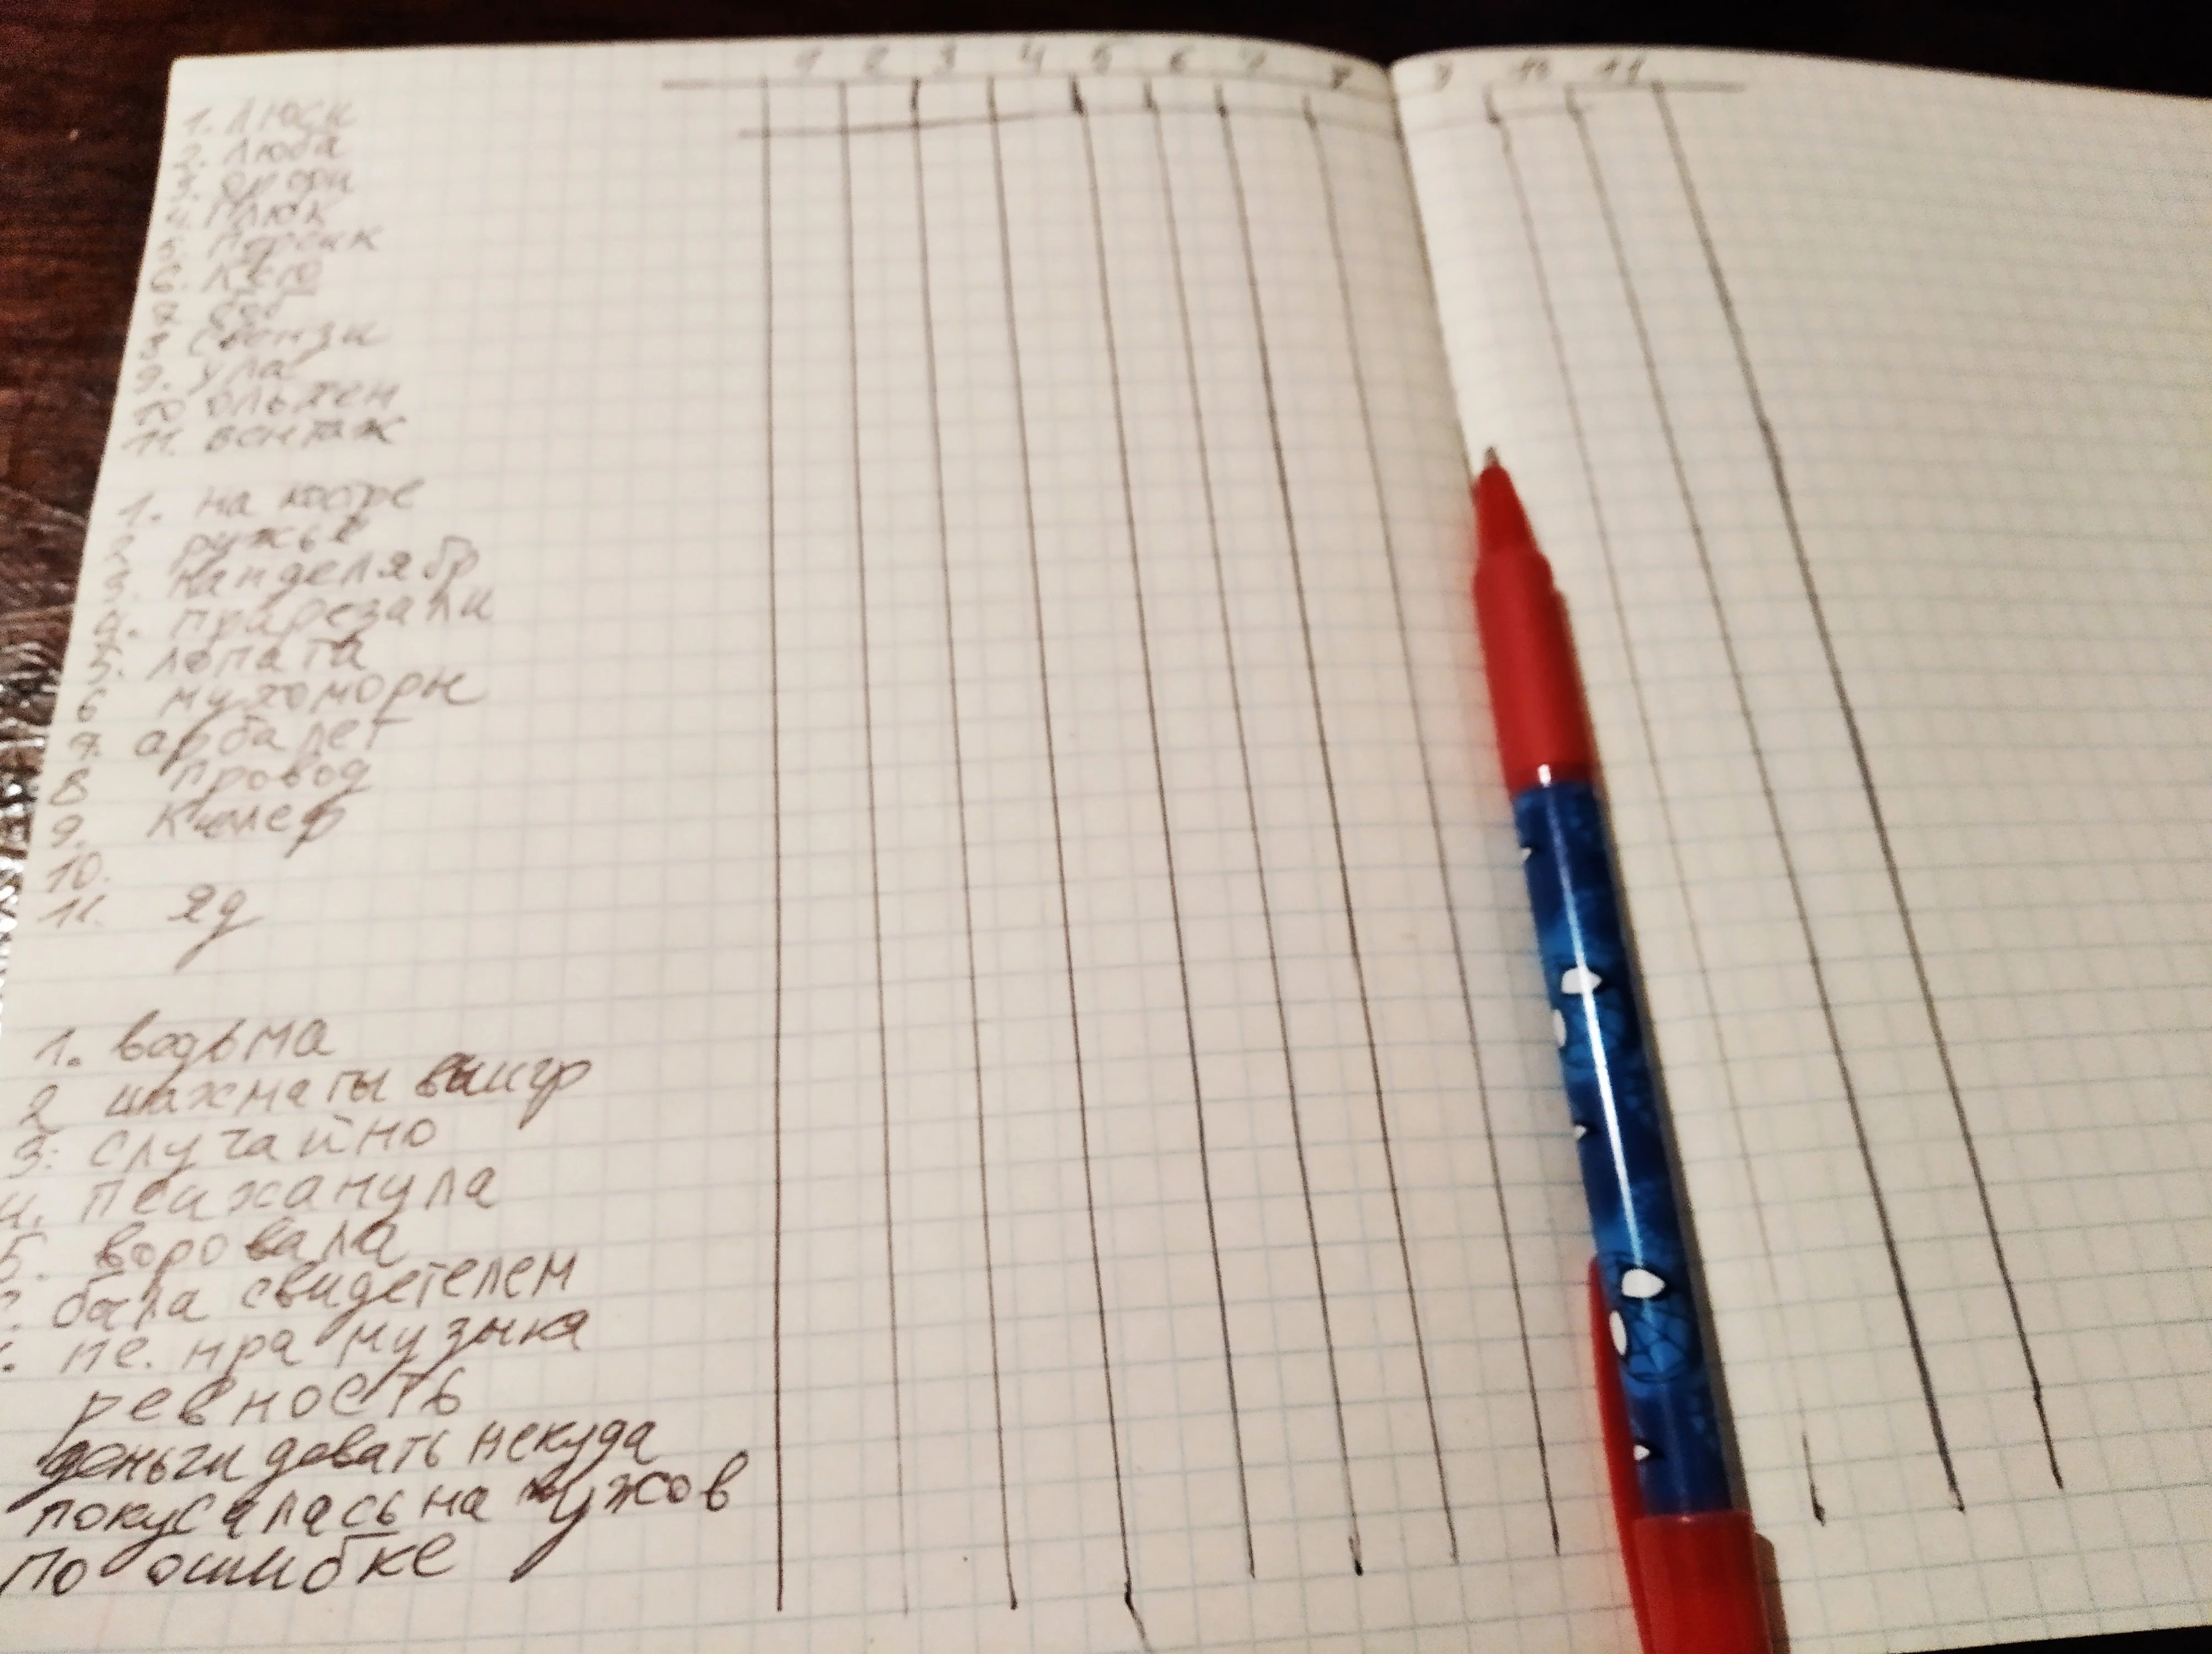 1 2 3 4 5 6 7 8 9 10 11
1. Люси
2. Люба
3.
4. Плюк
5. Персик
6.
7.
8 Свензи
9. Ула
10 Ольхен
11. Вентаж
1. на костре
2 ружьё
3. канделябр
4. прирезали
5. лопата
6 мухоморы
7. арбалет
8 провод
9. Киллер
10.
11. яд
1. ведьма
2 шахматы выигр
3. случайно
4. психанула
5. воровала
6. была свидетелем
7. не. нра музыка
ревность
деньги девать некуда
покусалась на мужов
по ошибке